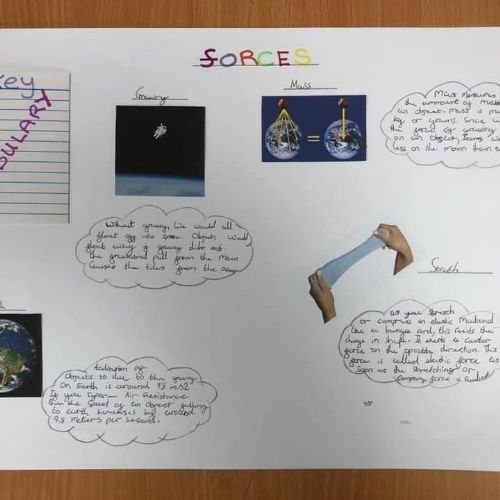 FORCES
key
BULARY
Gravity
Mass
Mass measures
the ammount of
an object. Mass is
kg or grams. Since
the force of gravity
on an object, items
less on the moon than
Without gravity, we would all
float off into space. Objects would
float away if gravity
the gravitational pull from the Moon
Causes the tides from the
Strech
as you Stretch
or compress an elastic Material
like a bungee cord, this resists the
change in shape. It exerts a counter
force in the opposite direction. This
force is called elastic force. As
Soon as the stretching or
Objects to due to the gravity
On Earth is around 9.8 m/s2
If you Ignore Air Resistance
then the Speed of an Object falling
to earth increases by around
9.8 Meters per Second.